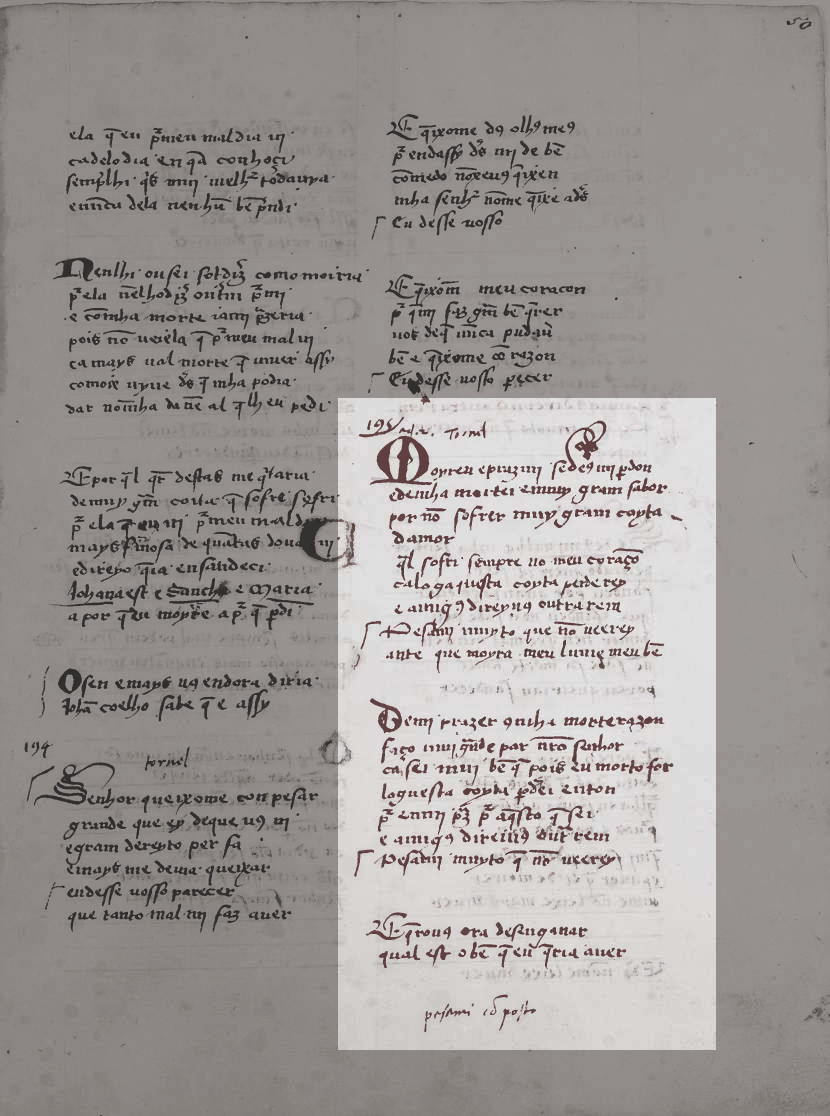 50
ela q̃ eu p̃ meu mal dia ui
ca delo dia en q̃ a conhoçi
semp̃ lhi q̃s mui melhr̃ todauya
e nũca dela nenhũ bẽ p̃ndi
Nenlhi ousei sol diz̃ como moiria
por ẽla
e cõ mha morte iami p̃zeria
pois nõ ueiela q̃ p̃ meu mal ui
ca mays ual morte q̃ uiuer assy
como ix uyue d̃s q̃ mha podia
dar nõ mha da nẽ al q̃ lh eu pedi
E por q̃l q̃r destas me q̃taria
de muy gr̃m coita q̃ sofre sofri
p̃ ela q̃ eu ui p̃ meu mal dia
mays fremosa de quãtas donas ui
e direyo q̃ ia ensandeci
Iohana est e Sancha e Maria
a por q̃ eu moyro e a p̃ q̃ p̃di
O sen e mays uꝯ en dora diria
Iohã coelho sabe q̃ e assy
194
tornel
Senhor queixome con pesar
grande que ey de que uꝯ ui
e gram dereyto per fa
e mays me deuia queixar
en desse uosso parecer
que tanto mal mi faz auer
E q̃ixome dꝯ olhꝯ meꝯ
p̃ en dassy d̃s mi de bẽ
cõ medo nõ xe uꝯ q̃ixen
mha senhr̃ nõme q̃ixe a d̃s
En desse uosso
E q̃ixom meu coracon
p̃ q̃ mi faz gr̃m bẽ q̃rer
uos de q̃ nũca pud auer
bẽ e q̃ixome cõ razon
En desse uosso parecer
195
tornel
Moyren e praz mi se deꝯ mi perdon
e de mha mortei e muy gram sabor
por nõ sofrer muy gram coyta
damor
q̃l sofri sempre no meu coraçõ
ca log aquesta coyta perderey
e amigꝯ direyuꝯ outra rem
Pesami muyto que nõ ueerey
ante que moyra meu lume meu bẽ
De mi prazer cõ mha morte razon
faço mui grãde par nr̃o senhor
ca sei mui bẽ q̃ pois eu morto for
log esta coyta p̃derei enton
p̃ en mi p̃z p̃ aq̃sto q̃ sei
e amigꝯ direiuꝯ outr rem
Pesami muyto q̃ nõ ueerey
E q̃rouꝯ ora desenganar
qual est o bẽ q̃ eu q̃ria auer
pesami